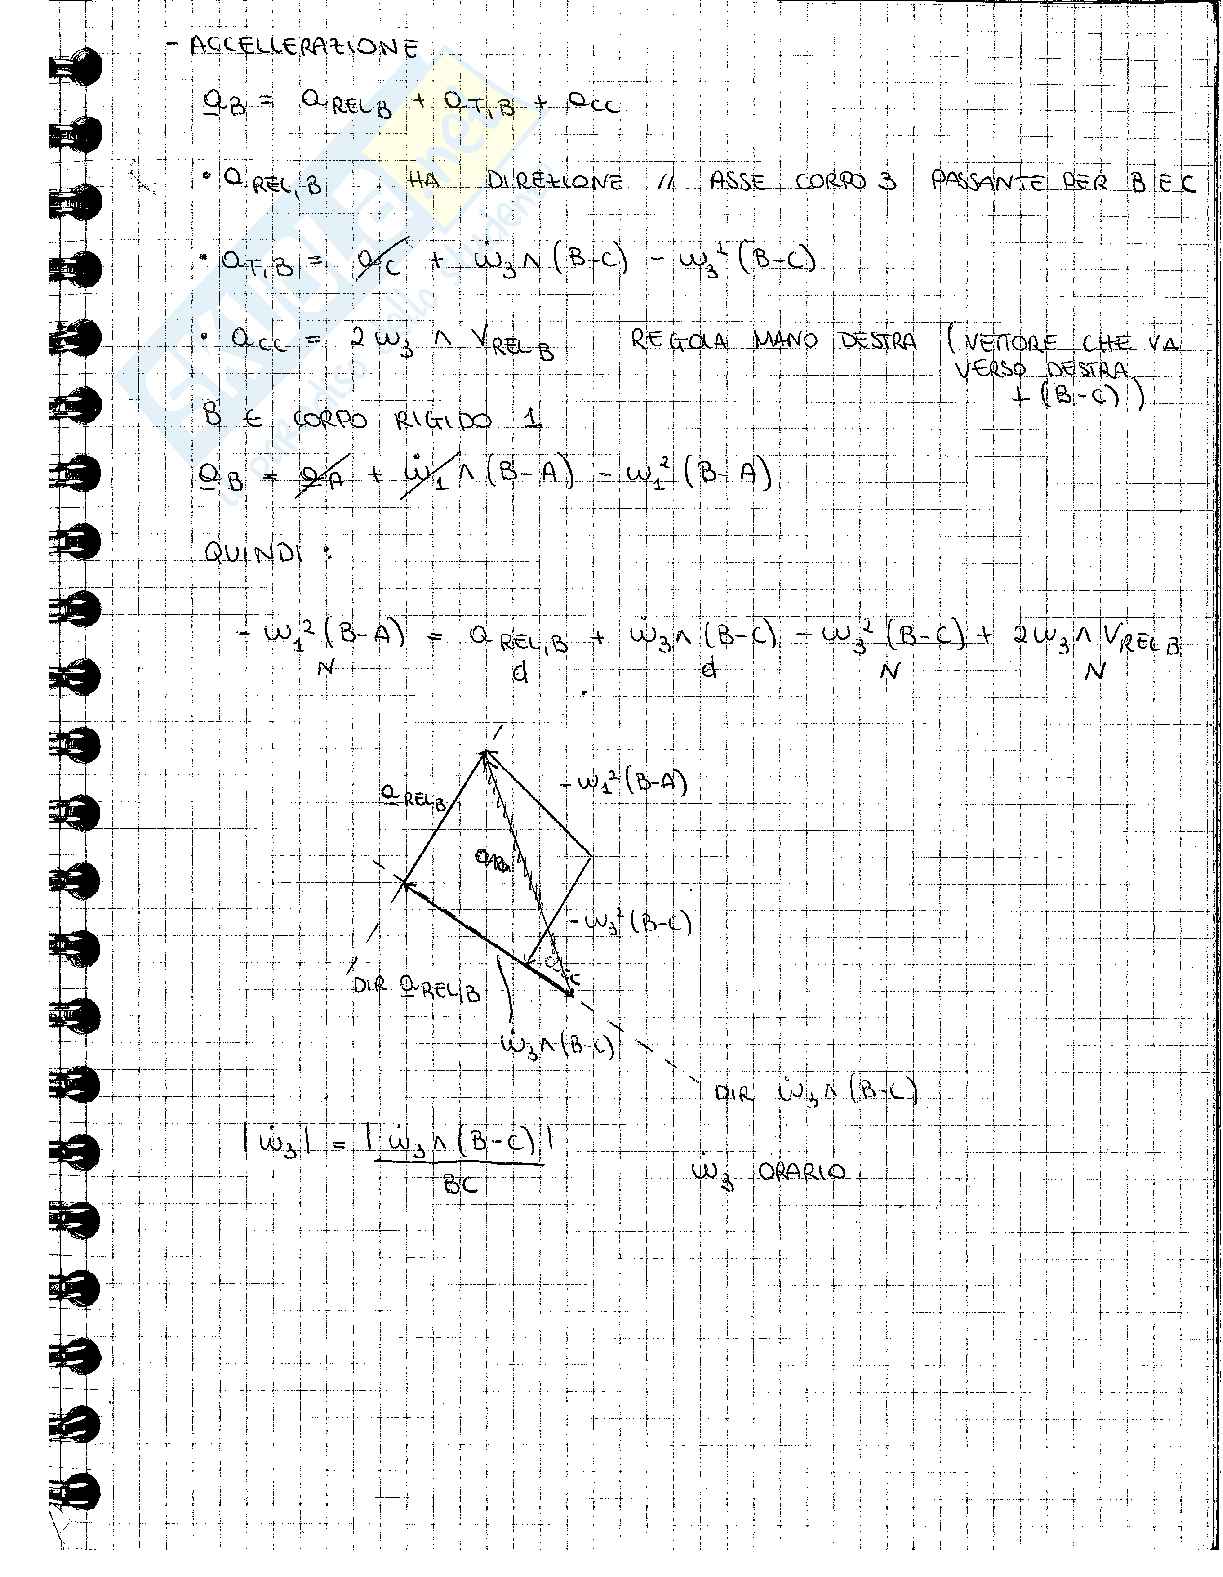 - ACCELLERAZIONE
a_B = a_REL,B + a_T,B + a_CC
• a_REL,B HA DIREZIONE // ASSE CORPO 3 PASSANTE PER B E C
• a_T,B = a_C + ω̇₃ ∧ (B-C) - ω₃² (B-C)
• a_CC = 2ω₃ ∧ V_REL,B REGOLA MANO DESTRA (VETTORE CHE VA
VERSO DESTRA
⊥ (B-C))
B ∈ CORPO RIGIDO 1
a_B = a_A + ω̇₁ ∧ (B-A) - ω₁² (B-A)
QUINDI :
- ω₁² (B-A) = a_REL,B + ω̇₃ ∧ (B-C) - ω₃² (B-C) + 2ω₃ ∧ V_REL,B
N d d N N
- ω₁² (B-A)
a_REL,B
- ω₃² (B-C)
DIR a_REL,B
ω̇₃ ∧ (B-C)
DIR ω̇₃ ∧ (B-C)
|ω̇₃| = |ω̇₃ ∧ (B-C)|
BC
ω̇₃ ORARIO